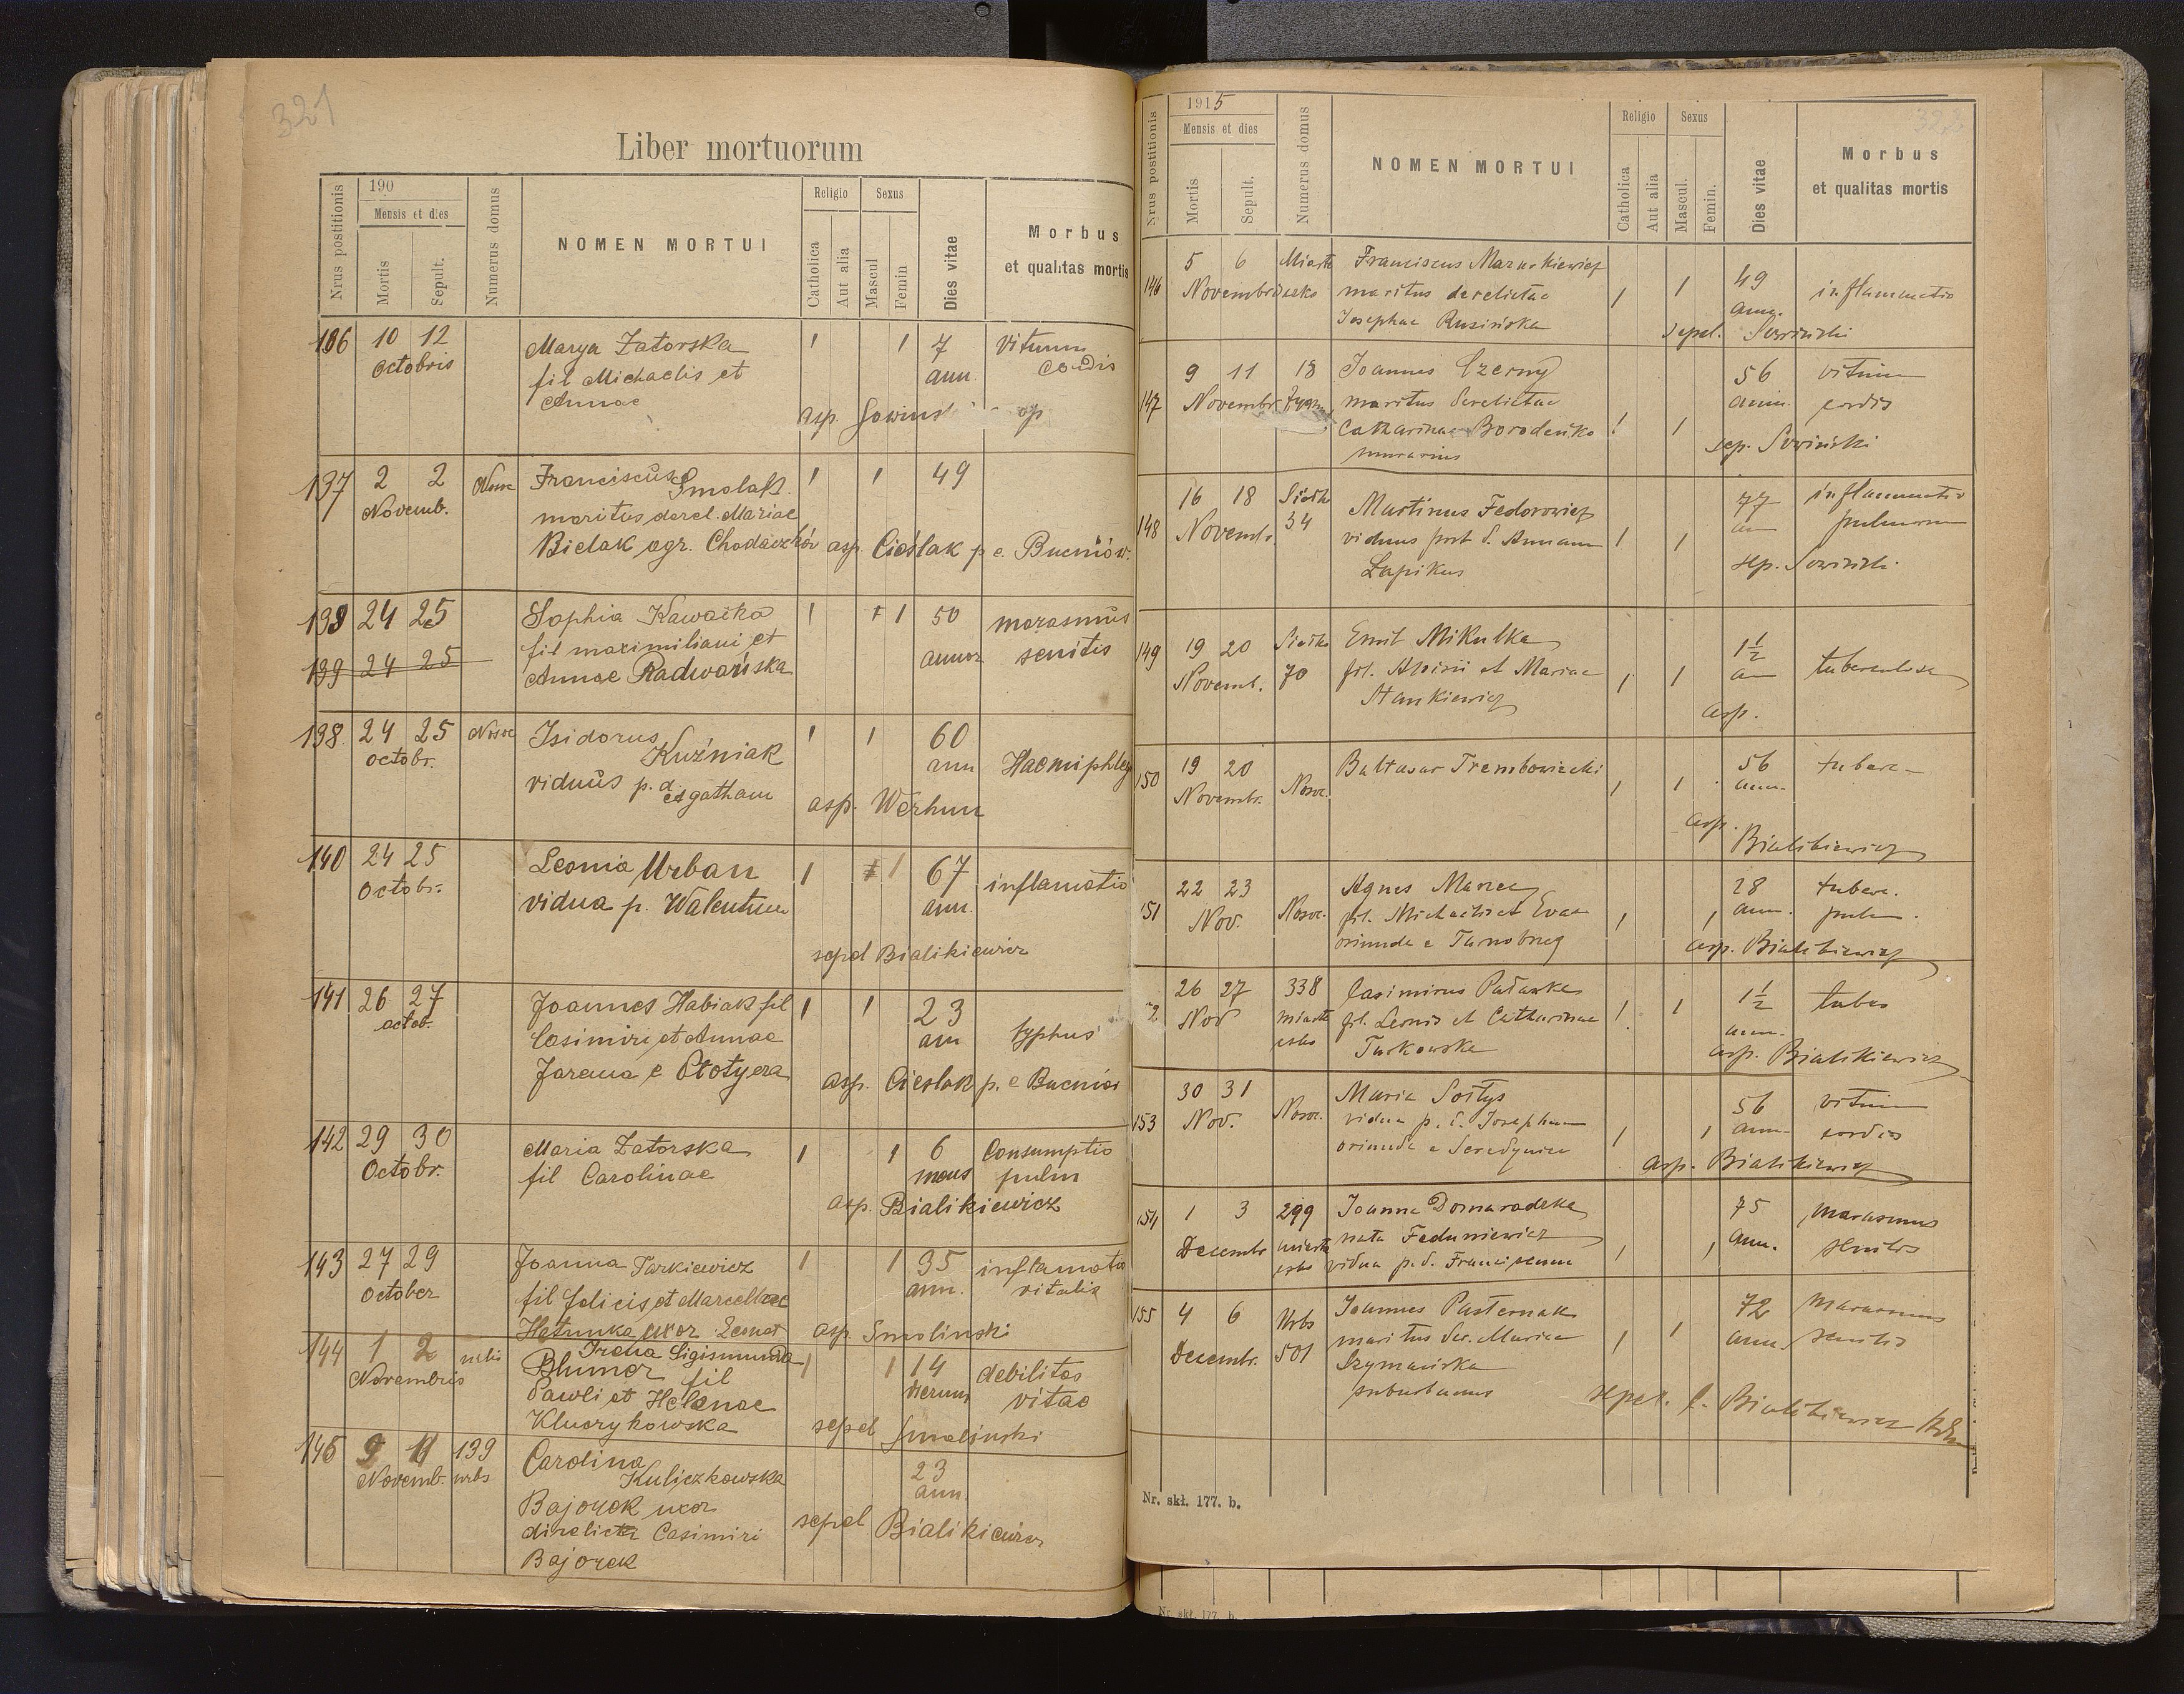 321
Liber mortuorum
Nrus postitionis
190
Mensis et dies
Mortis
Sepult.
Numerus domus
NOMEN MORTUI
Religio
Catholica
Aut alia
Sexus
Mascul
Femin
Dies vitae
Morbus
et qualitas mortis
136 10 12 Marya Zatorska 1 1 7 vitium
octobris fil Michaelis et ann. cordis
Annae asp. Sowinski
137 2 2 Noso Franciscus Smolak 1 1 49
Novemb. maritus derel. Mariae
Bielak agr. Chodaczków asp. Cieślak p e Bucniów.
138 24 25 Sophia Kawacka 1 1 50 marasmus
fil maximiliani et annor senilis
139 24 25 Annae Radwańska
138. 24 25 Nosoc Isidorus 1 1 60
octobr. Kuźniak ann Haemiphleg
viduus p. d. Agatham
asp. Werhun
140 24 25 Leonia Urban 1 1 67 inflamatio
Octobr. vidua p. Walentum ann.
sepel Bialikiewicz
141 26 27 Joannes Habiak fil 1 1 23
octob. Casimiri et Annae ann typhus
Jarema e Płotycza asp. Cieslak p. e Bucniów
142 29 30 Maria Zatorska 1 1 6 Consumptio
Octobr. fil Carolinae mens pulm
asp. Bialikiewicz
143 27 29 Joanna Tarkiewicz 1 1 35 inflamatio
October fil felicis et Marcellae ann. vitalis
Hetunka uxor Leonat asp Smolinski
144 1 2 urbis Irena Sigismunda 1 1 14 debilitas
Novembris Blumer fil dierum vitae
Pawli et Helenae
Kluczykowska sepel Smolinski
145 9 11 139 Carolina 23
Novemb. urbs Kuliczkowska ann.
Bajorek uxor
direlicta Casimiri sepel Bialikiewicz
Bajorek
Nrus postitionis
1915
Mensis et dies
Mortis
Sepult.
Numerus domus
NOMEN MORTUI
Religio
Catholica
Aut alia
Sexus
Mascul.
Femin.
Dies vitae
Morbus
et qualitas mortis
146 5 6 Miasto Franciscus Mazurkiewicz 49
Novembr. maritus derelictae 1 1 ann. inflammatio
Josephae Rusińska sepel. Sowiński
147 9 11 18 Joannes Czerny 56 vitium
Novembr. maritus derelictae ann. cordis
Catharinae Borodeńko 1 1
murarius sep. Sowiński
148 16 18 34 Martinus Fedorowicz 77 inflammatio
Novemb. viduus post d. Annam 1 1 an pulmonum
Łapikus sep. Sowiński
149 19 20 Emil Mikulka 1½
Novemb. 70 fil. Aloisii et Mariae 1 1 a tuberculosa
Stankiewicz asp.
150 19 20 Baltasar Trembowiecki 56 tuberc
Novembr. Nosoc. 1 1 ann.
asp.
Bialikiewicz
151 22 23 Agnes Marzec 28 tuberc.
Nov. Nosoc. fil. Michaelis et Evae 1 1 ann. pulm.
oriunda e Tarnobrzeg asp. Bialikiewicz
2 26 27 338 Casimirus Patawka 1½ tuber
Nov miasto fil. Leonis et Catharinae 1 1 ann.
Turkowska asp. Bialikiewicz
153 30 31 Maria Sołtys 56 vitium
Nov. Nosoc. vidua p. d. Josephum 1 1 ann. cordis
oriunda e Seredyńce asp. Bialikiewicz
154 1 3 299 Joanna Domaradzka 75 marasmus
Decembr miasto nata Feduniewicz 1 1 ann. senilis
vidua p. d. Franciscum
155 4 6 Urbs Joannes Pasternak 72 marasmus
Decembr. 501 maritus der. Mariae 1 1 ann. senilis
Szymańska
suburbanus sepel. Bialikiewicz
Nr. skł. 177. b.
Nr. skł. 177. b.